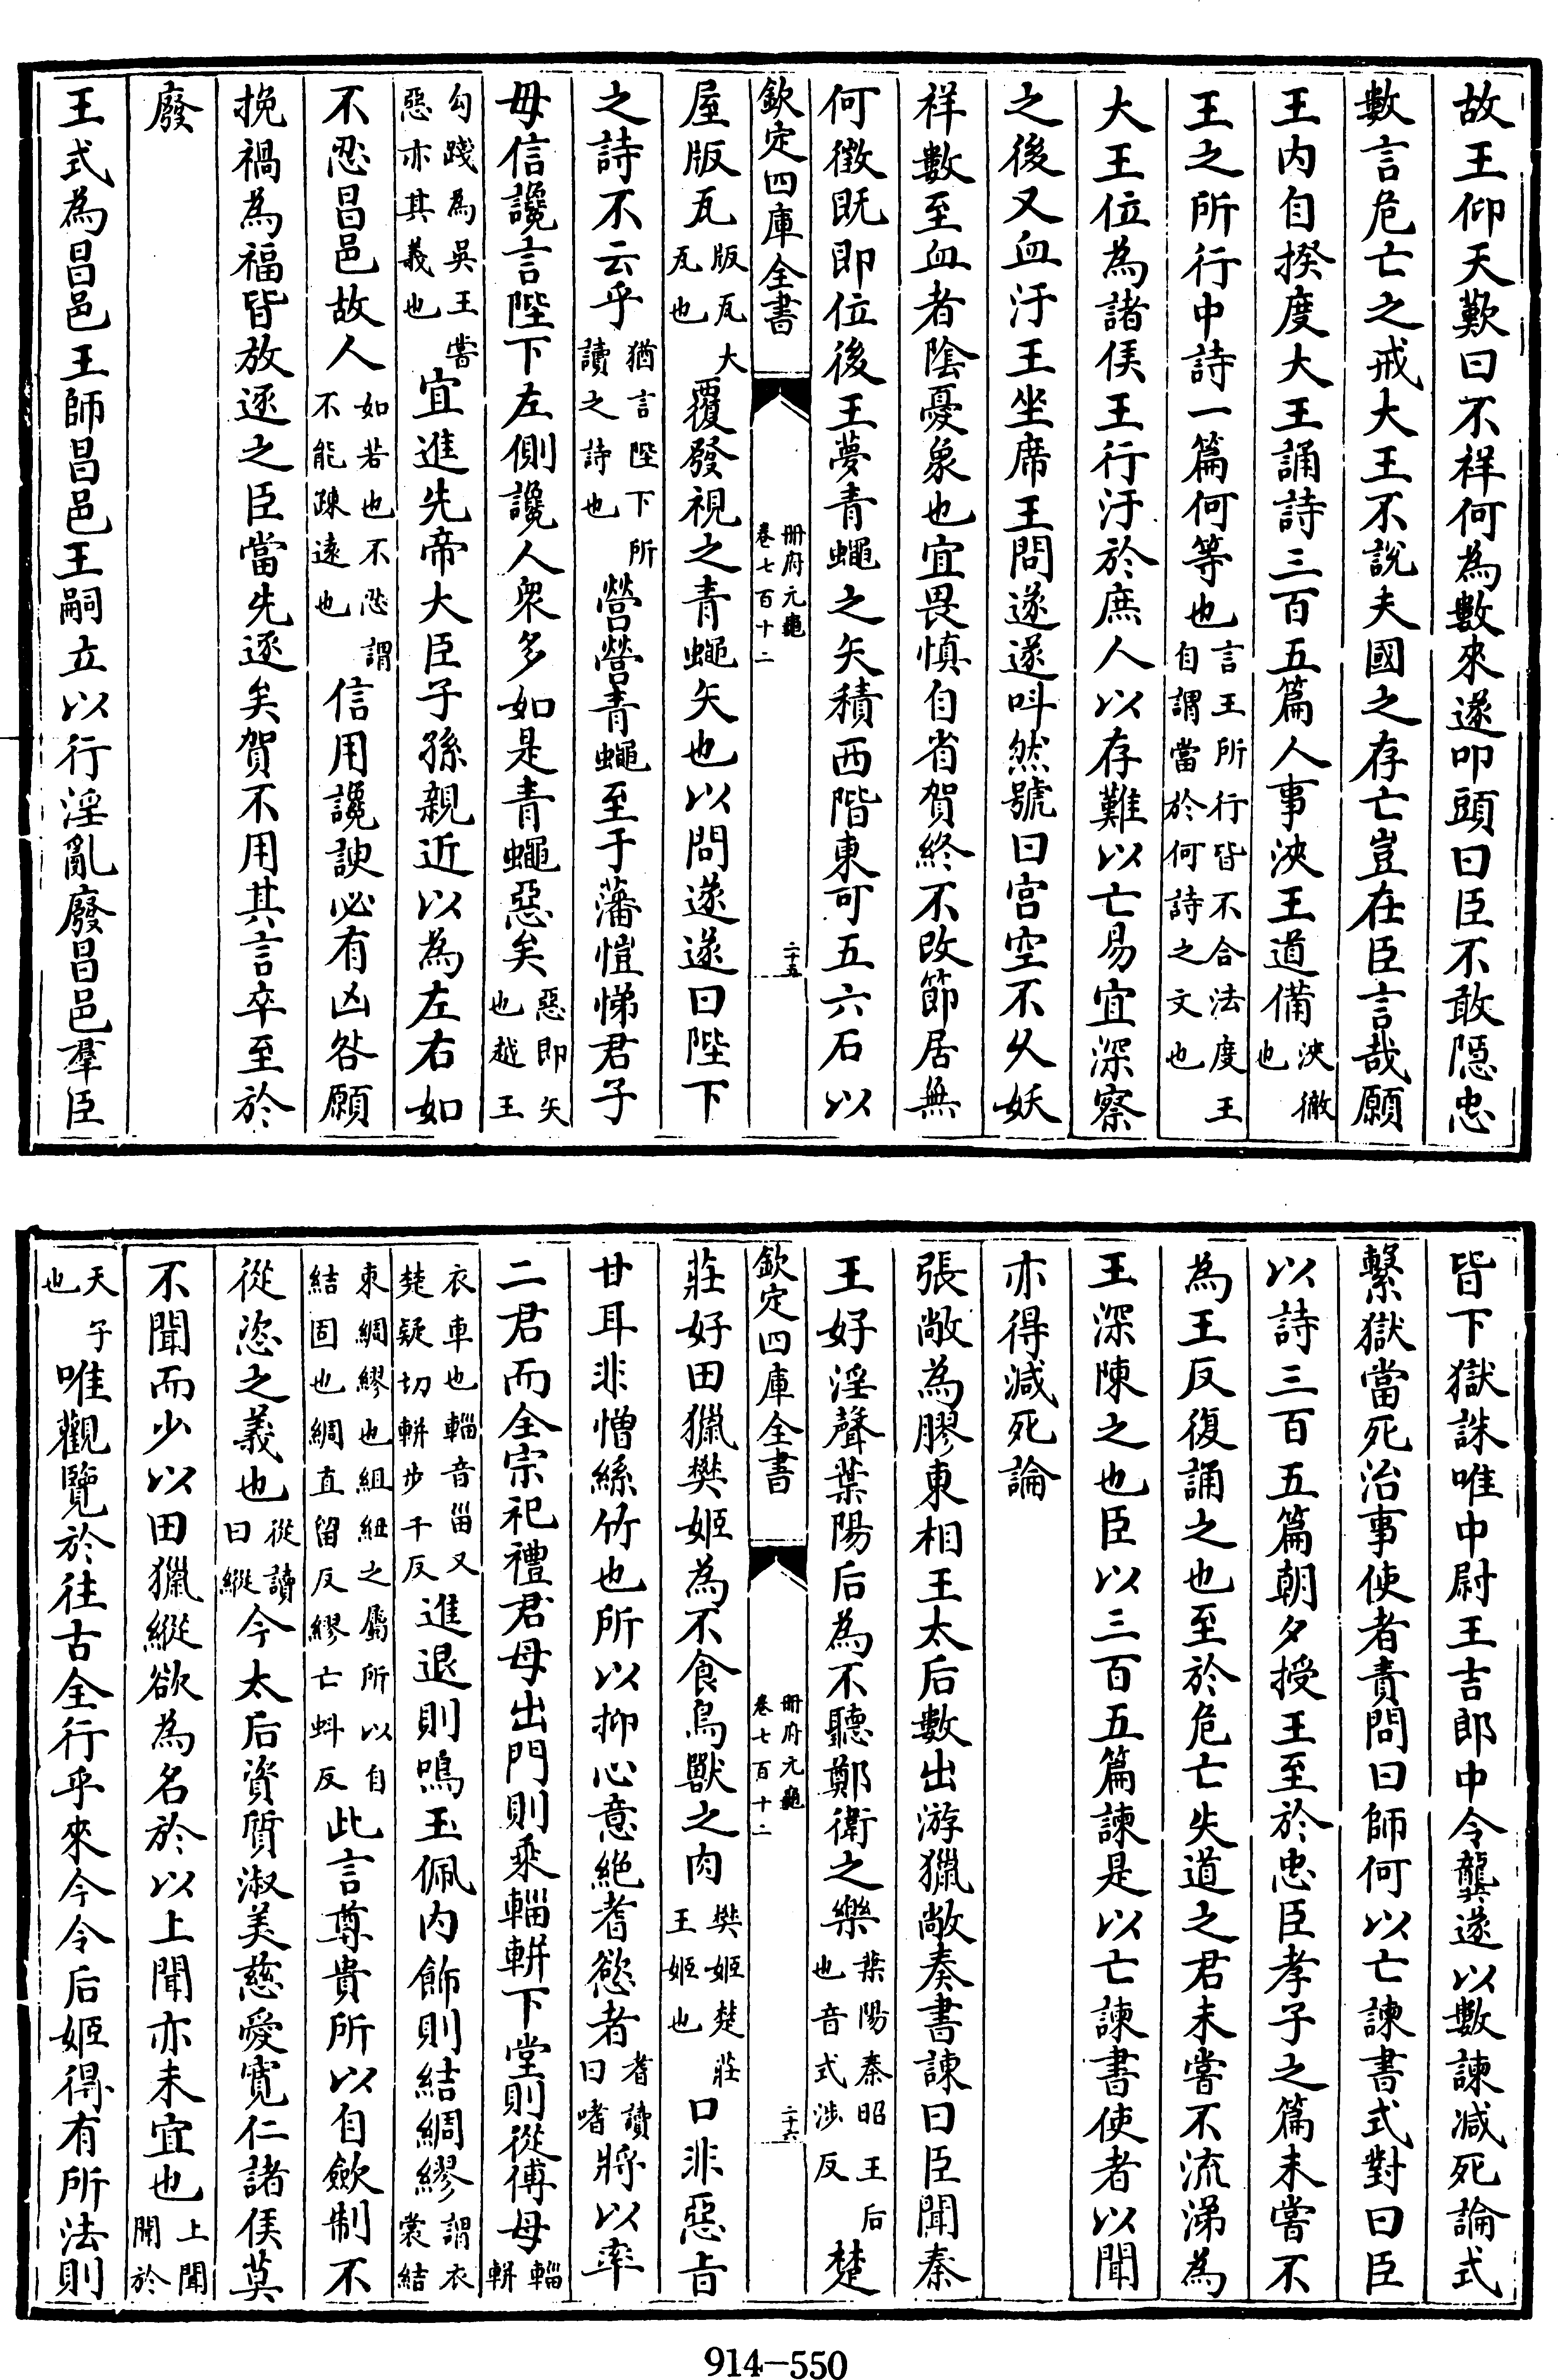 故王仰天歎曰不祥何為數來遂叩頭曰臣不敢隱忠
數言危亡之戒大王不說夫國之存亡豈在臣言哉願
王内自揆度大王誦詩三百五篇人事浹王道備浹徹也
王之所行中詩一篇何等也言王所行皆不合法度王自謂當於何詩之文也
大王位為諸侯王行汙於庶人以存難以亡易宜深察
之後又血汙王坐席王問遂遂叫然號曰宫空不久妖
祥數至血者隂憂象也宜畏慎自省賀終不改節居無
何徵既即位後王夢青蠅之矢積西階東可五六石以
欽定四庫全書
冊府元龜
卷七百十二
二十五
屋版瓦版瓦大瓦也覆發視之青蠅矢也以問遂遂曰陛下
之詩不云乎猶言陛下所讀之詩也營營青蠅至于藩愷悌君子
毋信讒言陛下左側讒人衆多如是青蠅惡矣惡即矢也越王
勾踐為吳王嘗惡亦其義也宜進先帝大臣子孫親近以為左右如
不忍昌邑故人如若也不忍謂不能疎遠也信用讒諛必有凶咎願
挽禍為福皆放逐之臣當先逐矣賀不用其言卒至於
廢
王式為昌邑王師昌邑王嗣立以行淫亂廢昌邑羣臣
皆下獄誅唯中尉王吉郎中令龔遂以數諫減死論式
繫獄當死治事使者責問曰師何以亡諫書式對曰臣
以詩三百五篇朝夕授王至於忠臣孝子之篇未嘗不
為王反復誦之也至於危亡失道之君未嘗不流涕為
王深陳之也臣以三百五篇諫是以亡諫書使者以聞
亦得減死論
張敞為膠東相王太后數出游獵敞奏書諫曰臣聞秦
王好淫聲葉陽后為不聽鄭衛之樂葉陽秦昭王后也音式涉反楚
欽定四庫全書
冊府元龜
卷七百十二
二十六
莊好田獵樊姬為不食鳥獸之肉樊姬楚莊王姬也口非惡旨
甘耳非憎絲竹也所以抑心意絶耆慾者耆讀曰嗜將以率
二君而全宗祀禮君母出門則乘輜軿下堂則從傅母輜軿
衣車也輜音甾又楚疑切軿步千反進退則鳴玉佩内飾則結綢繆謂衣裳結
束綢繆也組紐之屬所以自結固也綢直留反繆亡蚪反此言尊貴所以自歛制不
從恣之義也從讀曰縱今太后資質淑美慈愛寛仁諸侯莫
不聞而少以田獵縱欲為名於以上聞亦未宜也上聞聞於
天子也唯觀覽於往古全行乎來今令后姬得有所法則
914-550